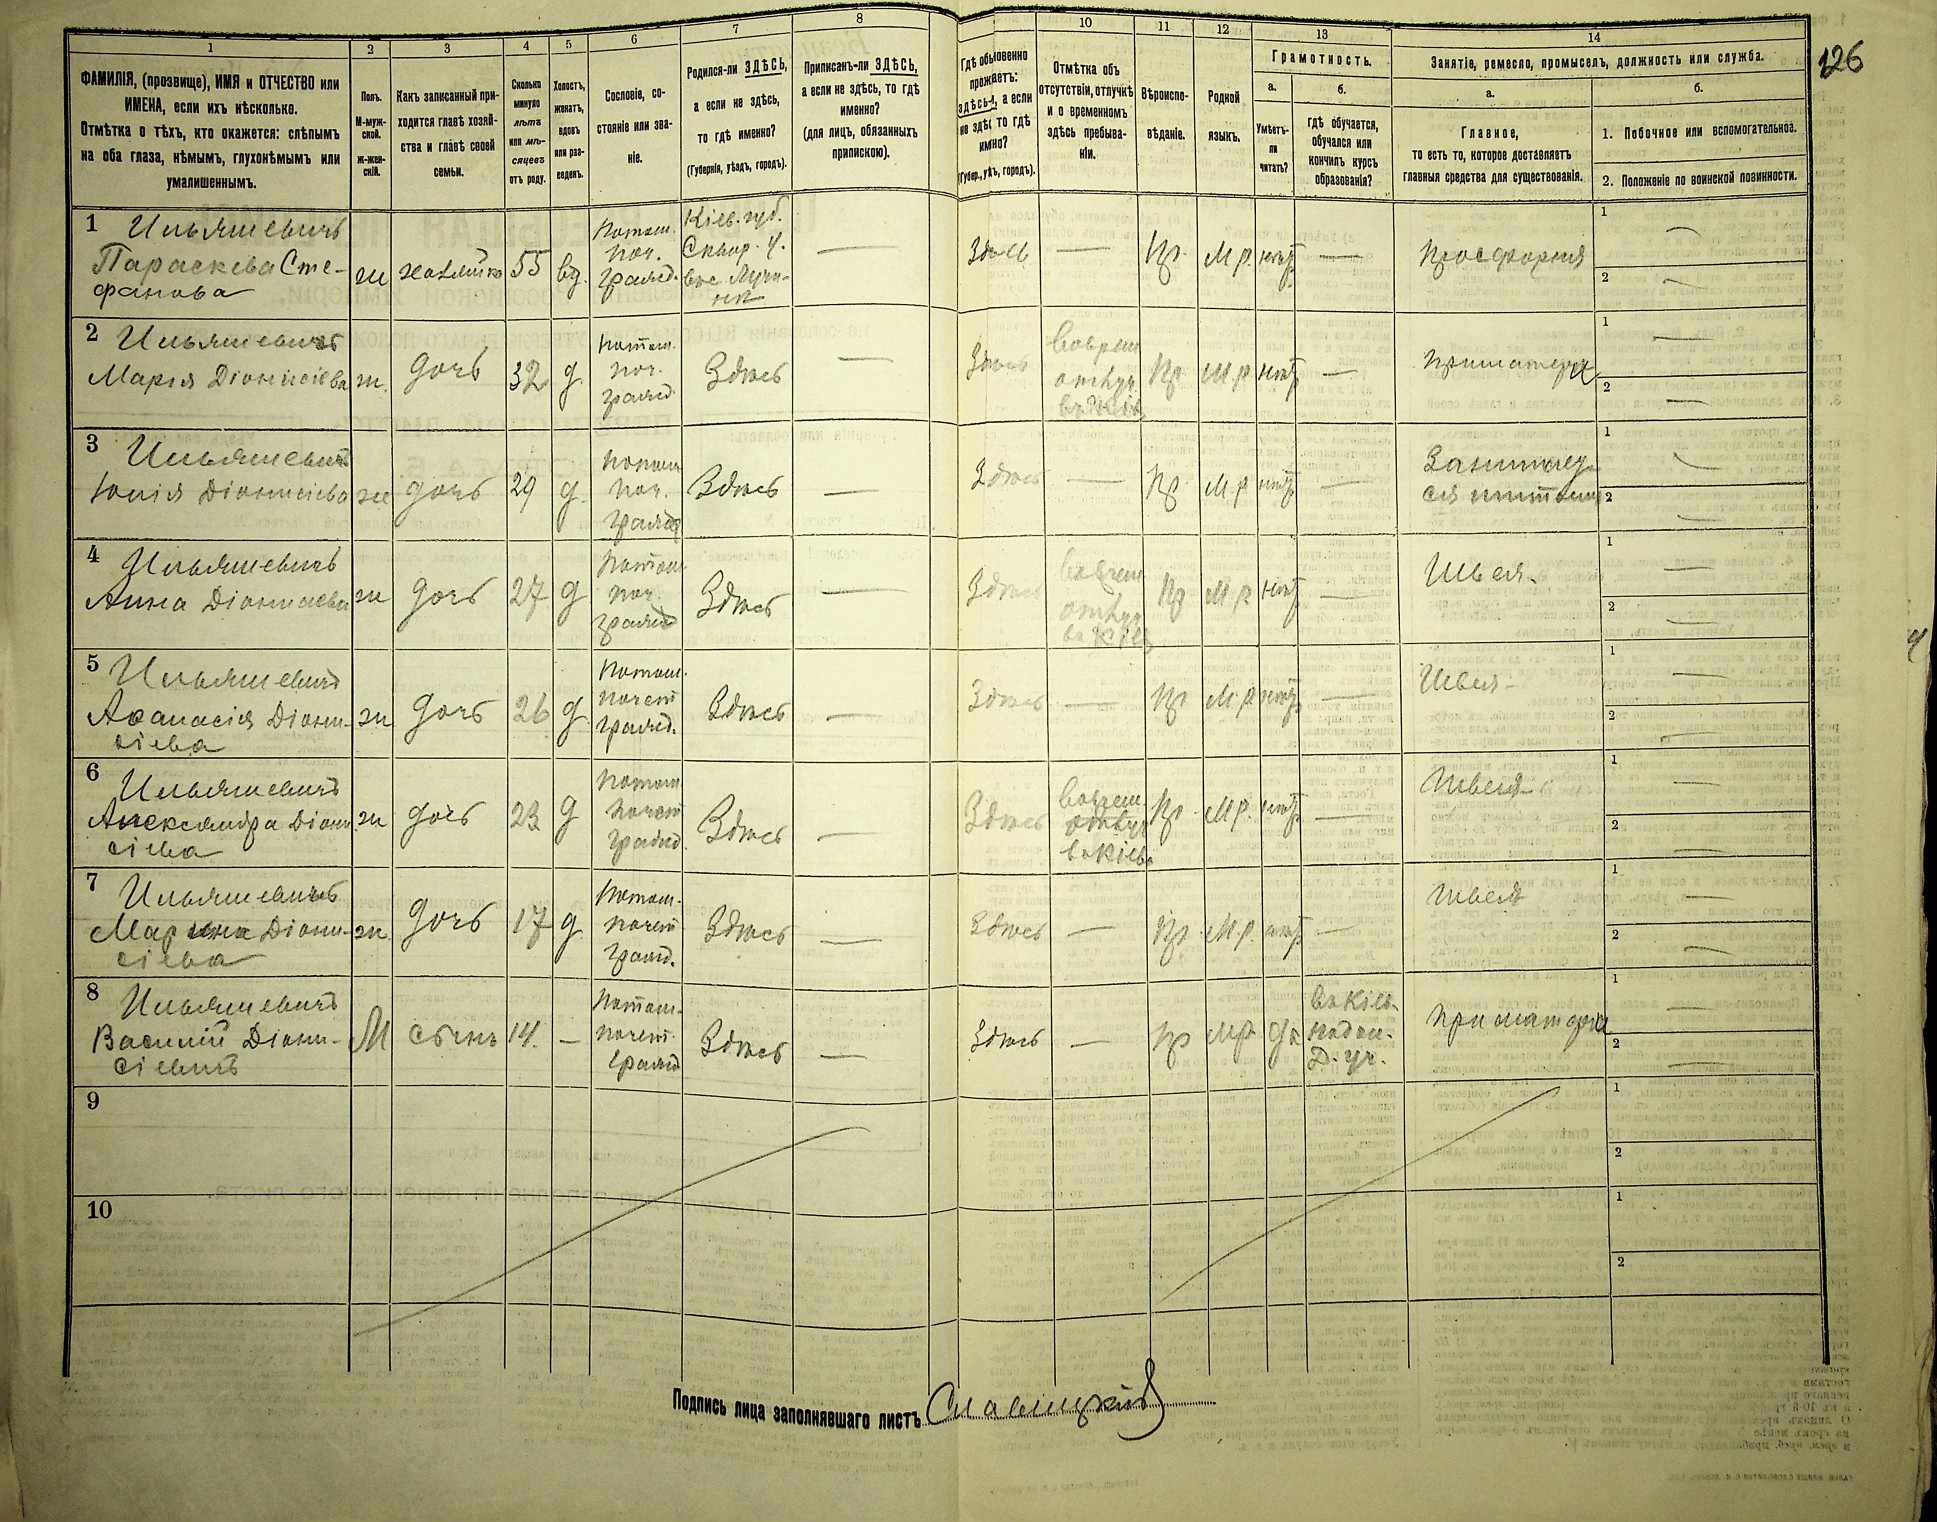 126
1 2 3 4 5 6 7 8 10 11 12 13 14
ФАМИЛІЯ, (прозвище), ИМЯ и ОТЧЕСТВО или
ИМЕНА, если ихъ нѣсколько.
Отмѣтка о тѣхъ, кто окажется: слѣпымъ
на оба глаза, нѣмымъ, глухонѣмымъ или
умалишеннымъ.
Полъ.
М-муж-
ской.
ж-жен-
скій.
Какъ записанный при-
ходится главѣ хозяй-
ства и главѣ своей
семьи.
Сколько
минуло
лѣтъ
или мѣ-
сяцевъ
отъ роду.
Холостъ,
женатъ,
вдовъ
или раз-
веденъ.
Сословіе, со-
стояніе или зва-
ніе.
Родился-ли ЗДѢСЬ,
а если не здѣсь,
то гдѣ именно?
(Губернія, уѣздъ, городъ).
Приписанъ-ли ЗДѢСЬ,
а если не здѣсь, то гдѣ
именно?
(для лицъ, обязанныхъ
припискою).
Гдѣ обыкновенно
проживаетъ:
здѣсь-ли, а если
не здѣсь то гдѣ
именно?
(Губер., уѣ., городъ).
Отмѣтка объ
отсутствіи, отлучкѣ
и о временномъ
здѣсь пребыва-
ніи.
Вѣроиспо-
вѣданіе.
Родной
языкъ.
Грамотность.
а. б.
Умѣетъ-
ли
читать?
гдѣ обучается,
обучался или
кончилъ курсъ
образованія?
Занятіе, ремесло, промыселъ, должность или служба.
а. б.
Главное,
то есть то, которое доставляетъ
главныя средства для существованія.
1. Побочное или вспомогательное.
2. Положеніе по воинской повинности.
1 Ильяшевичъ
Параскева Сте-
фанова
ж хозяйка 55 вд.
Потом.
поч.
гражд.
Кіев. губ.
Сквир. у.
— Здѣсь — Пр. М.р. нѣтъ — Просфорня
1 —
2 —
2 Ильяшевичъ
Марія Діонисіева
ж. дочь 32 д
потом.
поч.
гражд
Здѣсь — Здѣсь
Во врем
отлуч
въ Кіев
Пр М.р нѣтъ —
При матери
1 —
2 —
3 Ильяшевичъ
Юлія Діонисіева
ж дочь 29 д.
потом
поч.
гражд
Здѣсь — Здѣсь — Пр. М.р нѣтъ —
Занимает-
ся шитьем
1 —
2 —
4 Ильяшевичъ
Анна Діонисіева
ж дочь 27 д
Потом
поч.
гражд
Здѣсь — Здѣсь
Во врем
отлуч
въ Кіев
Пр М.р нѣтъ — Швея.
1 —
2 —
5 Ильяшевичъ
Аѳанасія Діони-
сіева
ж дочь 26 д
Потом.
почет
гражд.
Здѣсь — Здѣсь — Пр М.р нѣтъ — Швея
1 —
2 —
6 Ильяшевичъ
Александра Діони
сіева
ж дочь 23 д
Потом.
почет
гражд
Здѣсь — Здѣсь
Во врем.
отлуч
въ Кіев
Пр М.р. нѣтъ — Швея
1 —
2 —
7 Ильяшевичъ
Марина Діони-
сіева
ж. дочь 17 д
Потом.
почет
гражд.
Здѣсь — Здѣсь — Пр М.р. нѣтъ — Швея
1 —
2 —
8 Ильяшевичъ
Василий Діони-
сіевичъ
М сынъ 14. —
Потом.
почет.
гражд
Здѣсь — Здѣсь — Пр М.р. да
въ Кіев.
подол.
Д. уч.
При матери
1 —
2 —
9
1
2
10
1
2
Подпись лица заполнявшаго листъ Славицкій